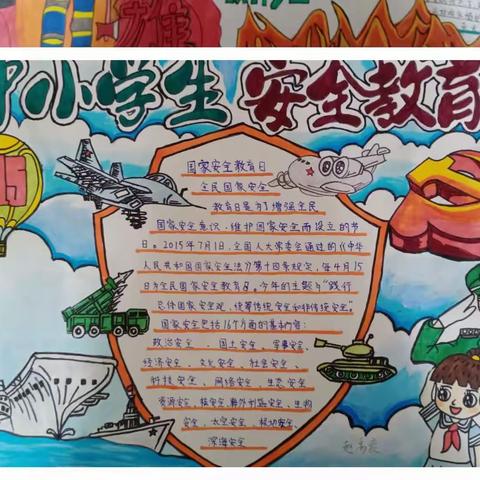 中小学生安全教育
国家安全教育日
全民国家安全
教育日是为了增强全民
国家安全意识,维护国家安全而设立的节
日。2015年7月1日,全国人大常委会通过的《中华
人民共和国国家安全法》第十四条规定,每年4月15
日为全民国家安全教育日。今年的主题为"践行
总体国家安全观,统筹传统安全和非传统安全"。
国家安全包括16个方面的基本内容:
政治安全、国土安全、军事安全、
经济安全、文化安全、社会安全、
科技安全、网络安全、生态安全
资源安全、核安全、海外利益安全、生物
安全、太空安全、极地安全、
深海安全